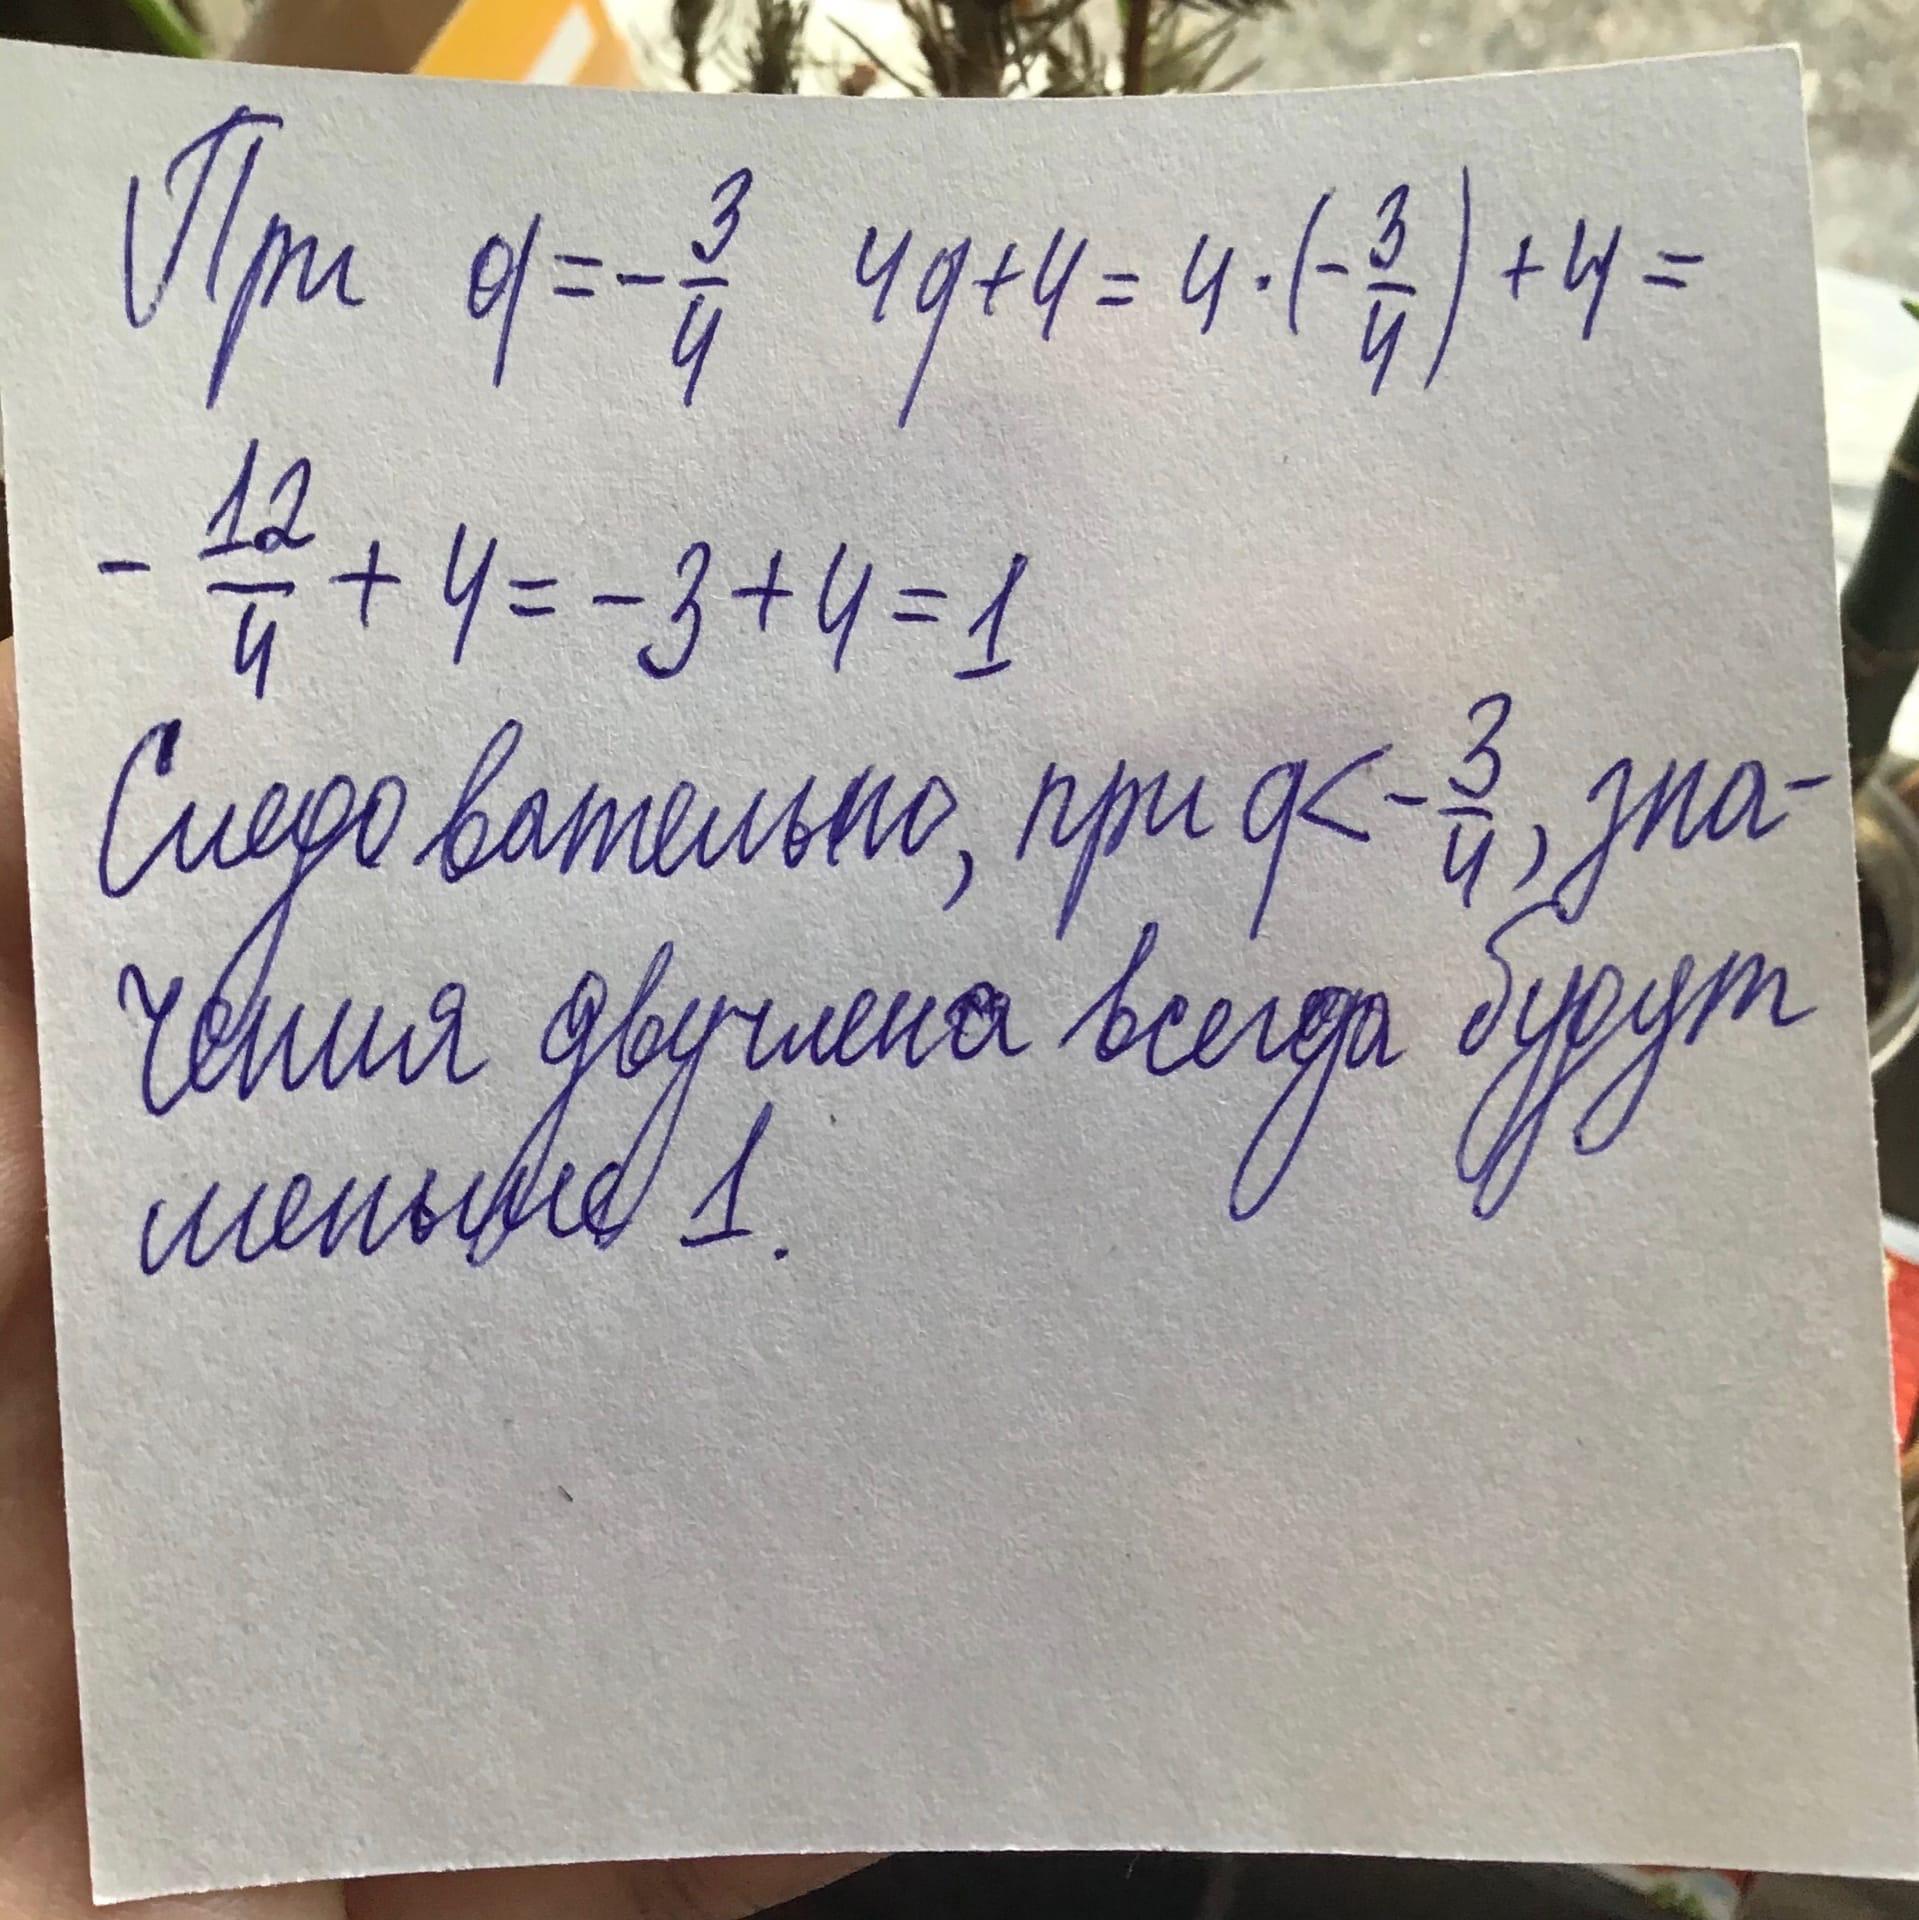 При q = - 3/4 4q + 4 = 4 · (- 3/4) + 4 =
- 12/4 + 4 = - 3 + 4 = 1
Следовательно, при q < - 3/4, зна-
чения двучлена всегда будут
меньше 1.